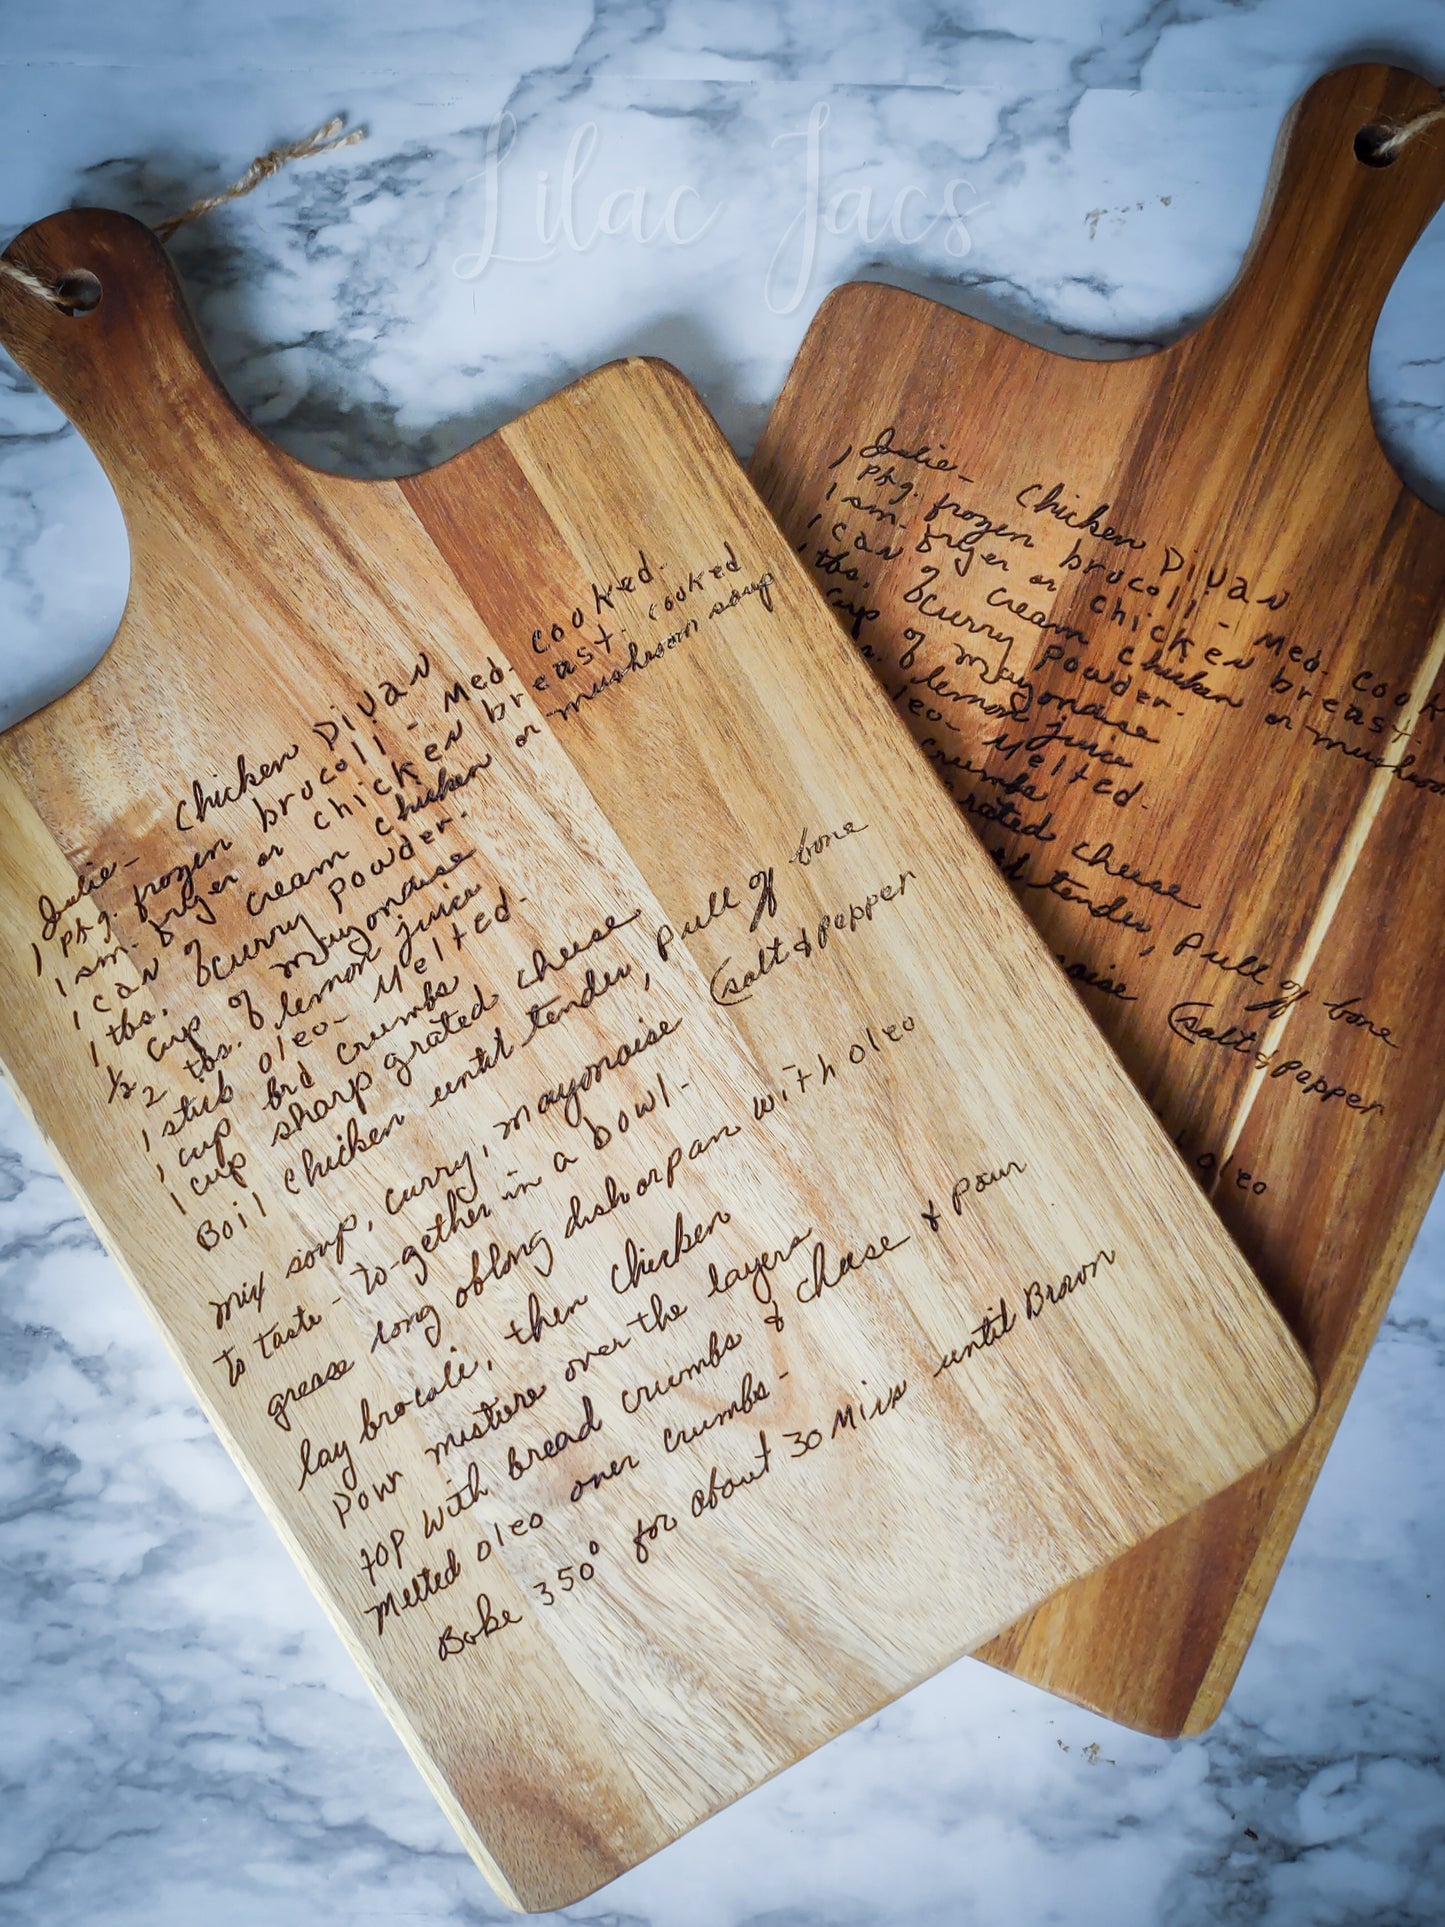 Lilac Jacs
Julie - Chicken Divan
1 pkg. frozen brocoli - Med. cooked.
1 sm. fryer or chicken breast. cooked
1 can of cream chicken or mushroom soup
1 tbs. curry powder.
1/2 cup of mayonaise
2 tbs. of lemon juice
1 stick oleo - melted.
1 cup brd crumbs
1 cup sharp grated cheese
Boil chicken until tender, pull of bone
mix soup, curry, mayonaise (salt & pepper
to taste - to-gether in a bowl -
grease long oblong dish or pan with oleo
lay brocoli, then chicken
Pour mixture over the layers
top with bread crumbs & cheese & pour
melted oleo over crumbs -
Bake 350° for about 30 Min until Brown
Julie - Chicken Divan
1 pkg. frozen brocoli - Med. cook
1 sm. fryer or chicken breast.
1 can of cream chicken or mushroom
tbs. curry powder.
cup of mayonaise
of lemon juice
oleo - melted.
crumbs
grated cheese
tender, pull of bone
(salt & pepper
oleo